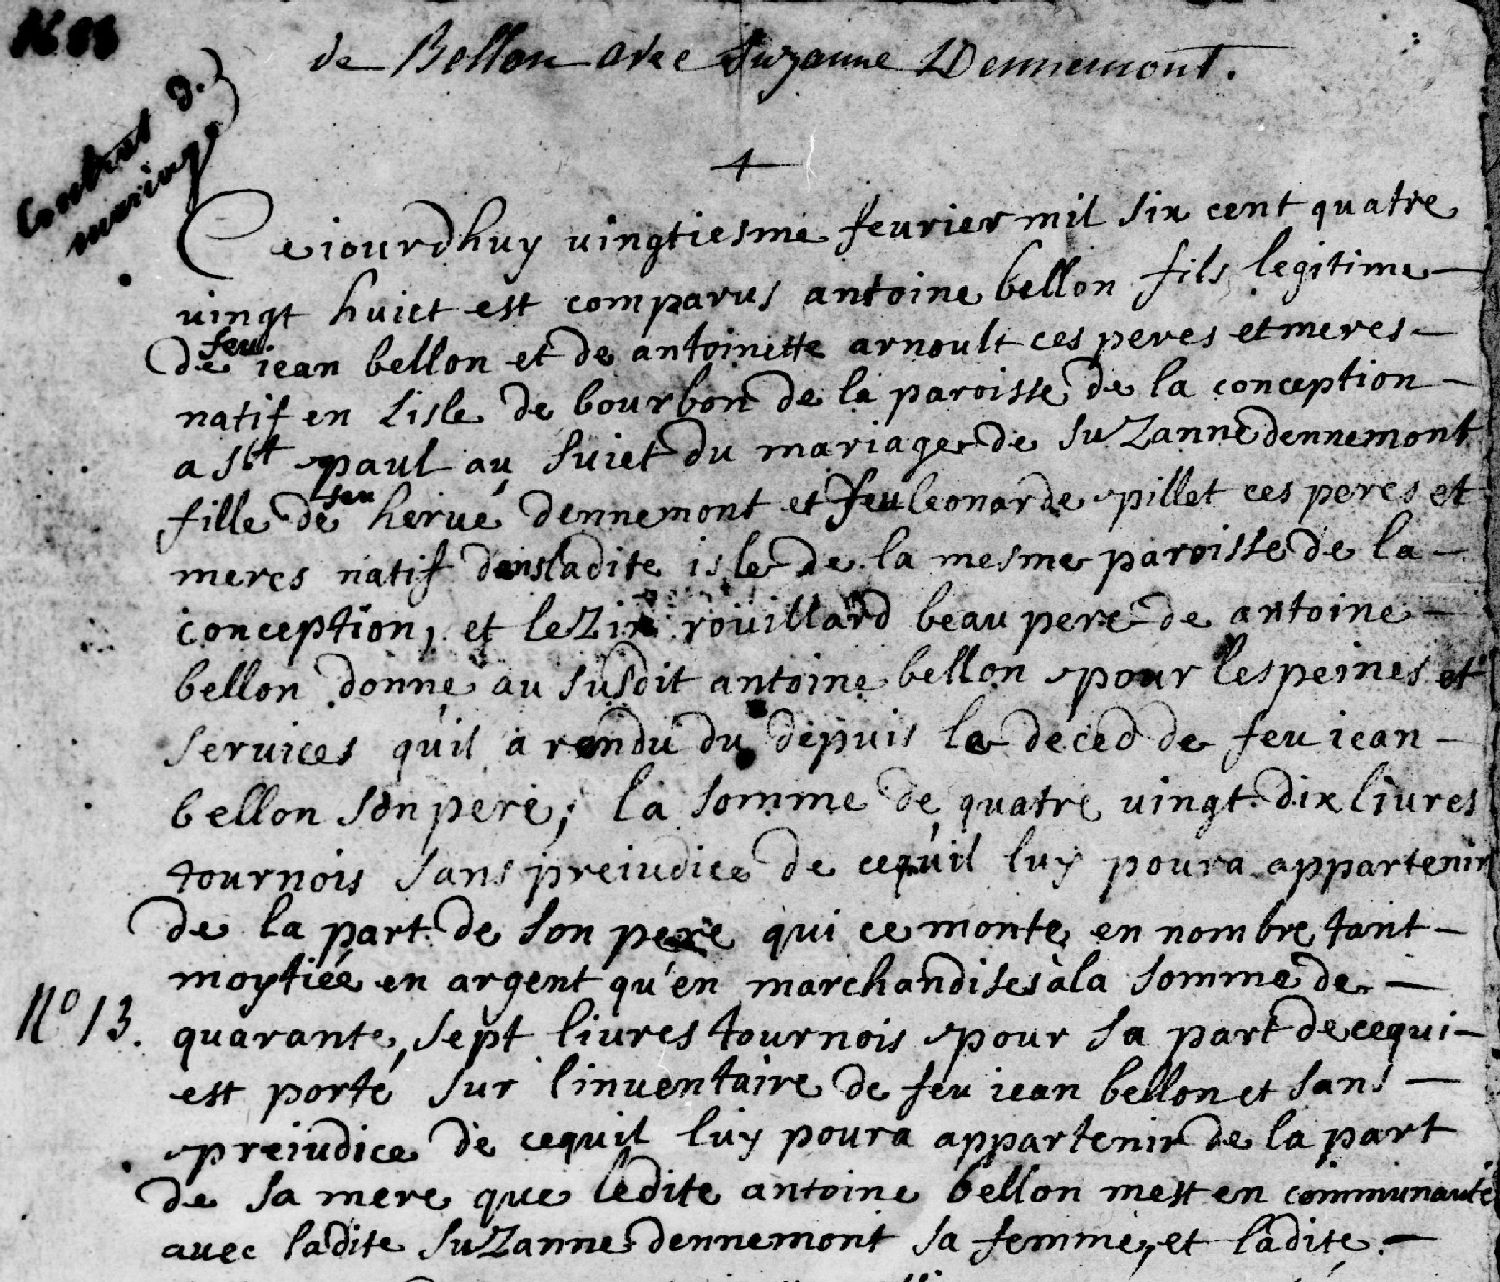 1688
de Bellon avec Suzanne Dennemont.
Contrat d.
mariage
Ceiourdhuy vingtiesme feurier mil six cent quatre
vingt huict est comparus antoine bellon fils legitime
de feu iean bellon et de antoinette arnoult ces peres et meres
natif en Lisle de bourbon de la paroisse de la conception
a st paul au suiet du mariage de suZanne dennemont
fille de feu herué dennemont et feu leonarde pillet ces peres et
meres natif dans ladite isle de la mesme paroisse de la
conception, et leZin rouillard beau pere de antoine
bellon donne au susdit antoine bellon pour les peines et
services qu'il a rendu du depuis le deced de feu iean
bellon son pere, la somme de quatre vingt dix livres
tournois sans preiudice de cequ'il luy poura appartenir
de la part de son pere qui ce monte en nombre tant
moytieé en argent qu'en marchandises à la somme de
N° 13. quarante, sept liures tournois pour sa part de cequi
est porté sur l'inventaire de feu iean bellon et sans
preiudice de cequil luy poura appartenir de la part
de sa mere que ledite antoine bellon mest en communauté
avec ladite suZanne dennemont sa femme, et ladite